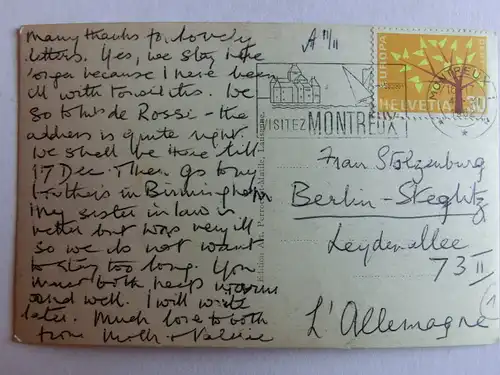 Many thanks for lovely
letters. Yes, we stay here
longer because I have been
ill with tonsilitis. We
go to Hôt. de Rossi - the
address is quite right.
We shall be here till
17 Dec. Then go to my
brother's in Birmingham
My sister in law is
better but was very ill
so we do not want
to stay too long. You
must both keep warm
and well. I will write
later. Much love to both
from Molly + Valerie
A II/II
VISITEZ MONTREUX
EUROPA
HELVETIA
30
MONTREUX
Edition Art. Perrochet-Matile, Lausanne.
Frau Stolzenburg
Berlin-Steglitz
Leydenallee
73 II
L'Allemagne